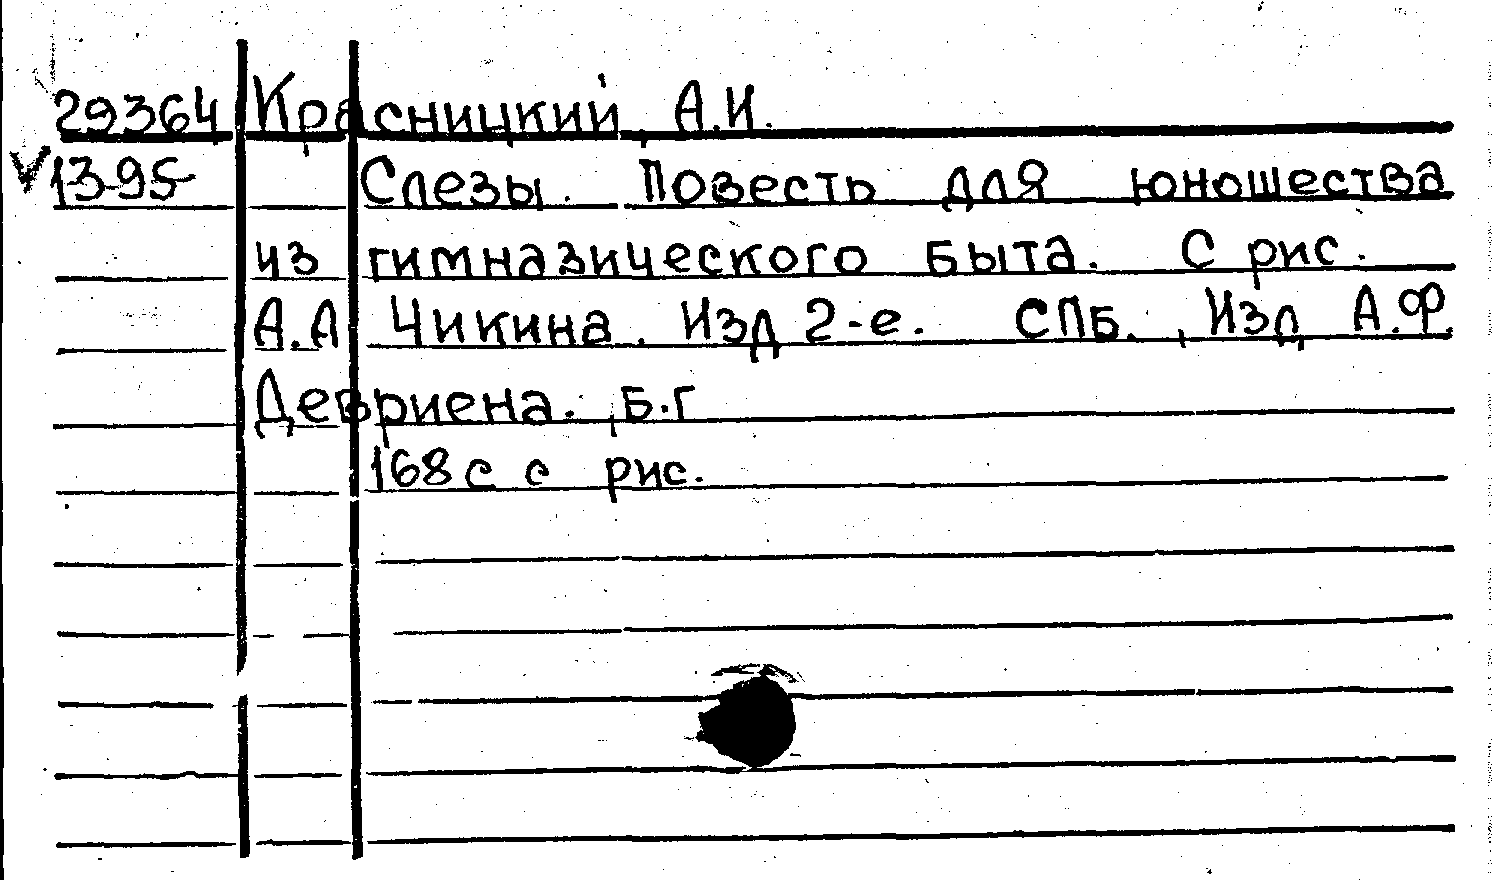 29364 Красницкий, А.И.
V 13-95 Слезы. Повесть для юношества
из гимназического быта. С рис.
А.А Чикина. Изд 2-е. СПБ., Изд А.Ф.
Девриена. Б.г
168 с с рис.